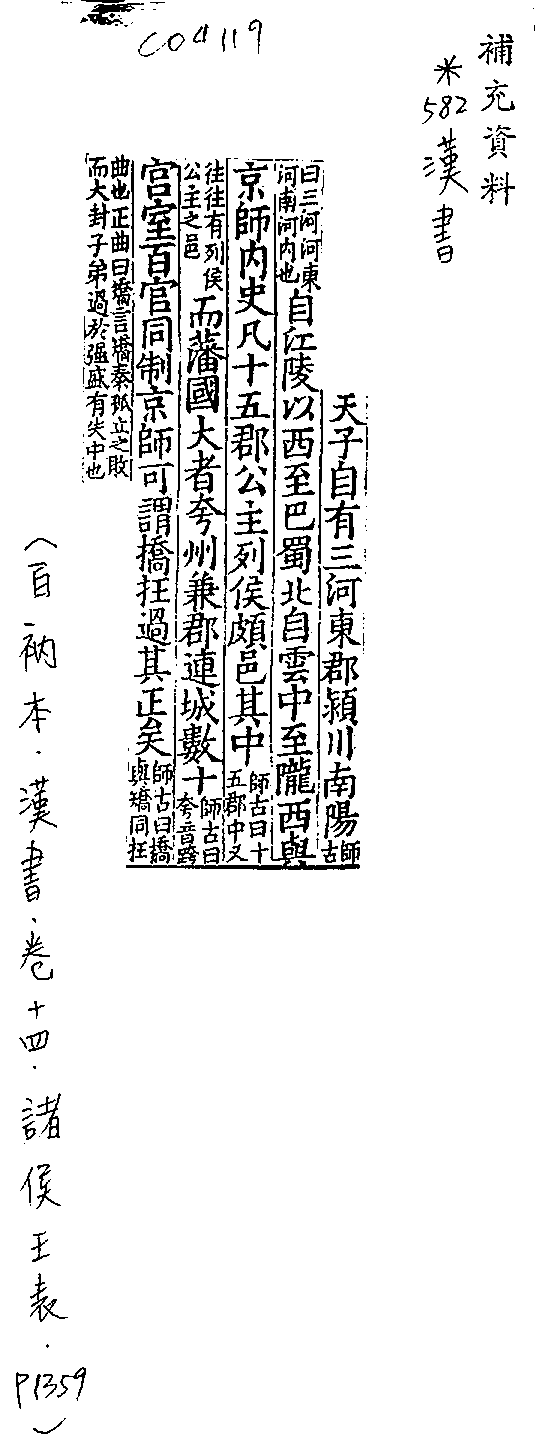 C04119
補充資料
※582漢書
天子自有三河東郡潁川南陽師古
曰三河河東河南河內也自江陵以西至巴蜀北自雲中至隴西與
京師內史凡十五郡公主列侯頗邑其中師古曰十五郡中又
往往有列侯公主之邑而藩國大者夸州兼郡連城數十師古曰夸音跨
宮室百官同制京師可謂撟抂過其正矣師古曰撟與矯同抂
曲也正曲曰撟言撟秦孤立之敗而大封子弟過於強盛有失中也
(百衲本．漢書．卷十四．諸侯王表．P1359)